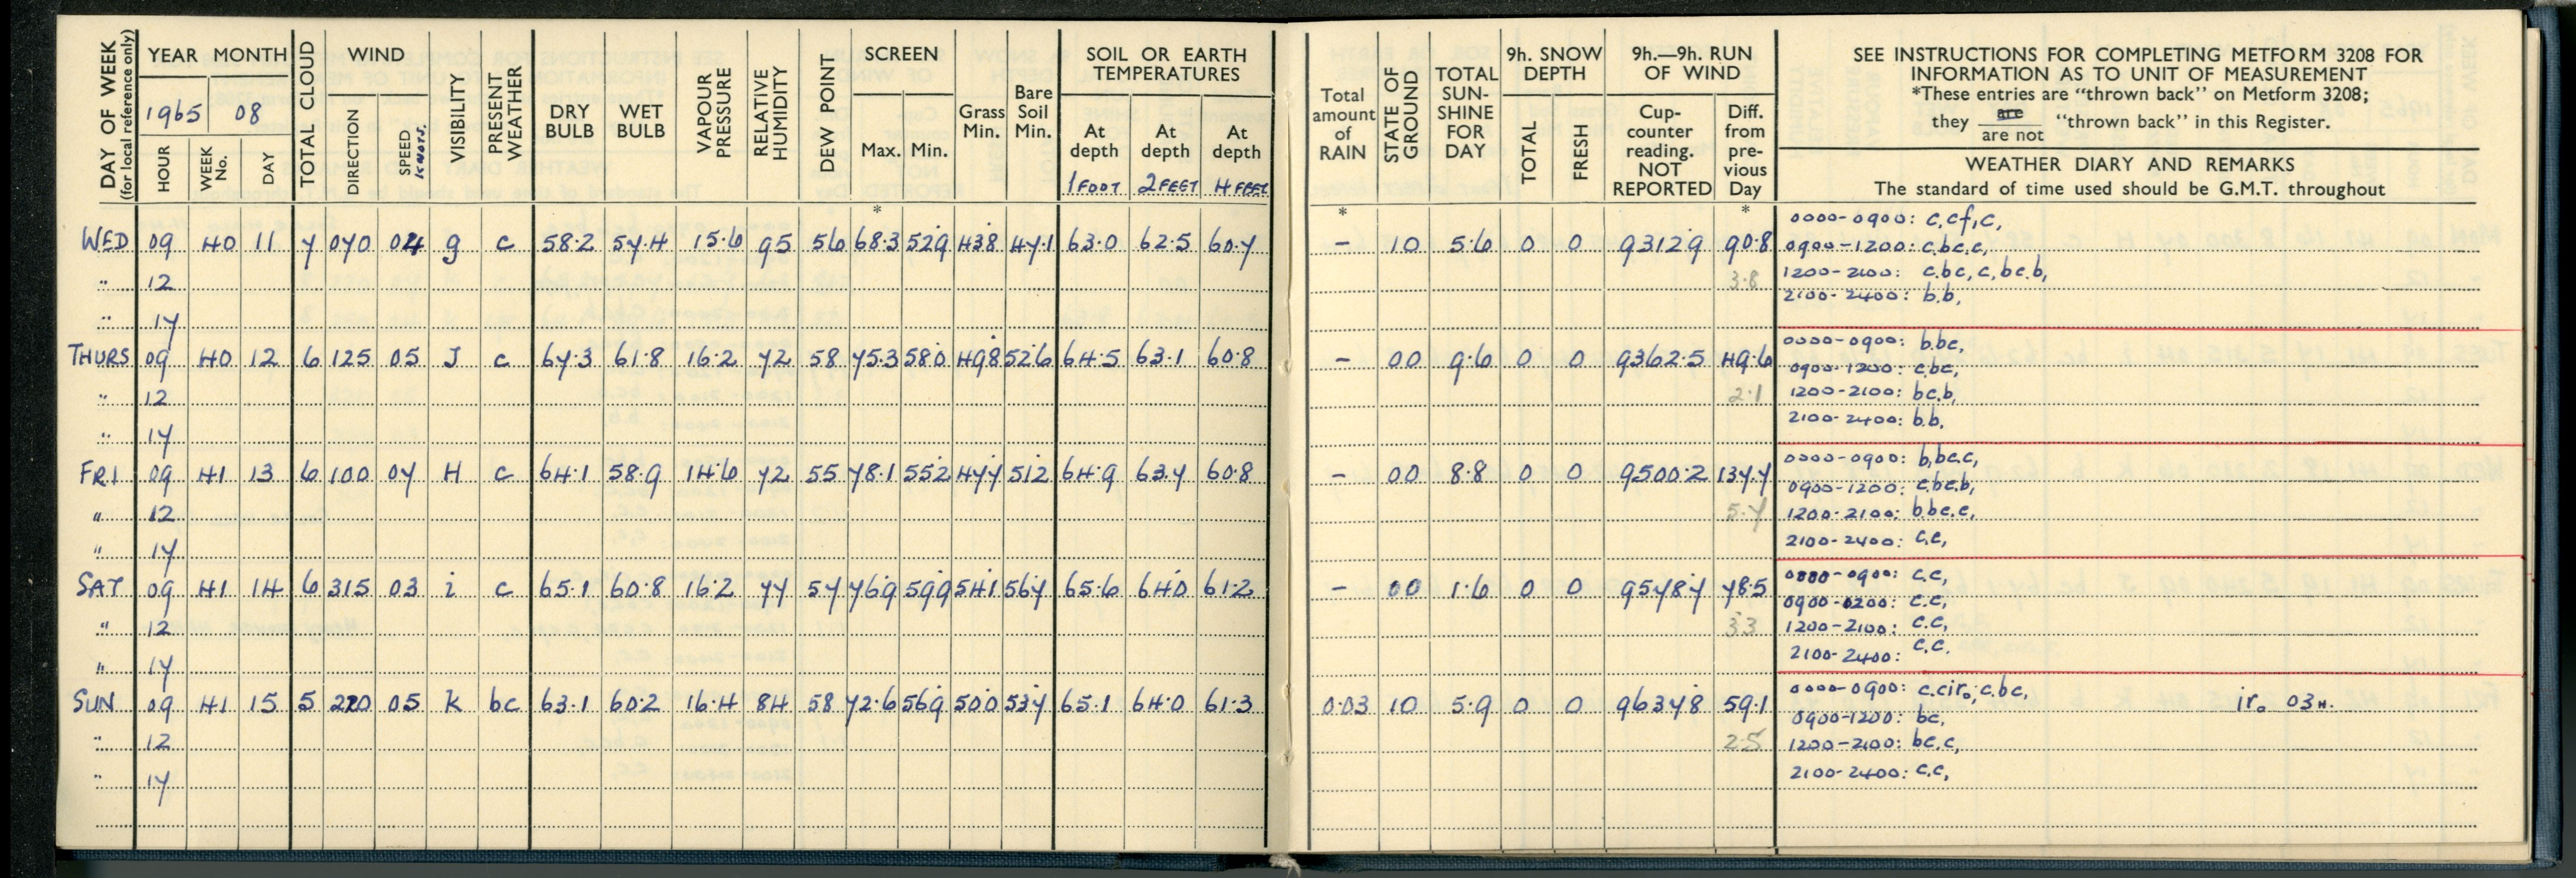 DAY OF WEEK (for local reference only) YEAR MONTH TOTAL CLOUD WIND VISIBILITY PRESENT WEATHER DRY BULB WET BULB VAPOUR PRESSURE RELATIVE HUMIDITY DEW POINT SCREEN Grass Min. Bare Soil Min. SOIL OR EARTH TEMPERATURES
1965 08 DIRECTION SPEED KNOTS.
HOUR WEEK No. DAY Max. Min. At depth 1 FOOT At depth 2 FEET At depth 4 FEET
*
WED 09 40 11 7 070 04 g c 58.2 57.4 15.6 95 56 68.3 52.9 43.8 47.1 63.0 62.5 60.7
" 12
" 17
THURS 09 40 12 6 125 05 J c 67.3 61.8 16.2 72 58 75.3 58.0 49.8 52.6 64.5 63.1 60.8
" 12
" 17
FRI 09 41 13 6 100 07 H c 64.1 58.9 14.6 72 55 78.1 55.2 47.7 51.2 64.9 63.7 60.8
" 12
" 17
SAT 09 41 14 6 315 03 i c 65.1 60.8 16.2 77 57 76.9 59.9 54.1 56.7 65.6 64.0 61.2
" 12
" 17
SUN 09 41 15 5 220 05 K bc 63.1 60.2 16.4 84 58 72.6 56.9 50.0 53.7 65.1 64.0 61.3
" 12
" 17
Total amount of RAIN STATE OF GROUND TOTAL SUN- SHINE FOR DAY 9h. SNOW DEPTH 9h.—9h. RUN OF WIND
TOTAL FRESH Cup- counter reading. NOT REPORTED Diff. from pre- vious Day
SEE INSTRUCTIONS FOR COMPLETING METFORM 3208 FOR
INFORMATION AS TO UNIT OF MEASUREMENT
*These entries are "thrown back" on Metform 3208;
they are / are not "thrown back" in this Register.
WEATHER DIARY AND REMARKS
The standard of time used should be G.M.T. throughout
* *
0000-0900: c,cf,c,
– 10 5.6 0 0 9312.9 90.8 0900-1200: c,bc.c,
3.8 1200-2100: c.bc,c,bc.b,
2100-2400: b.b,
0000-0900: b.bc,
– 00 9.6 0 0 9362.5 49.6 0900-1200: c.bc,
2.1 1200-2100: bc.b,
2100-2400: b.b.
0000-0900: b,bc.c,
– 00 8.8 0 0 9500.2 137.7 0900-1200: c.bc.b,
5.7 1200-2100: b.bc.c,
2100-2400: c.c,
0000-0900: c.c,
– 00 1.6 0 0 9578.7 78.5 0900-0200: c.c,
3.3 1200-2100: c.c,
2100-2400: c.c.
0000-0900: c.cir₀; c.bc, ir₀ 03H.
0.03 10 5.9 0 0 9637.8 59.1 0900-1200: bc,
2.5 1200-2100: bc.c,
2100-2400: c.c,